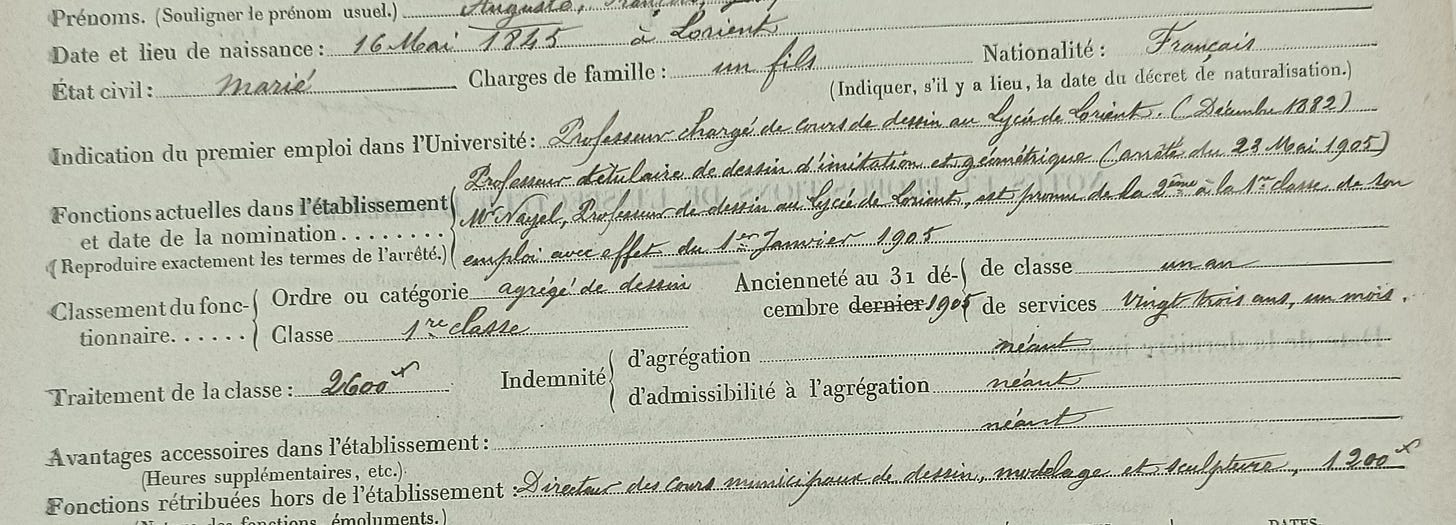 Prénoms. (Souligner le prénom usuel.) Auguste,
Date et lieu de naissance : 16 Mai 1845 à Lorient Nationalité : Français
État civil : marié Charges de famille : un fils (Indiquer, s'il y a lieu, la date du décret de naturalisation.)
Indication du premier emploi dans l'Université : Professeur chargé de cours de dessin au Lycée de Lorient. (Décembre 1882)
Professeur titulaire de dessin d'imitation et géométrique (arrêté du 23 Mai 1905)
Fonctions actuelles dans l'établissement Mr Nayel, Professeur de dessin au Lycée de Lorient, est promu de la 2ème à la 1re classe de son
et date de la nomination........ emploi avec effet du 1er Janvier 1905
(Reproduire exactement les termes de l'arrêté.)
Classement du fonc- Ordre ou catégorie agrégé de dessin Ancienneté au 31 dé- de classe un an
tionnaire...... Classe 1re classe cembre dernier 1905 de services Vingt trois ans, un mois.
Traitement de la classe : 2600 Indemnité d'agrégation néant
d'admissibilité à l'agrégation néant
Avantages accessoires dans l'établissement : néant
(Heures supplémentaires, etc.)
Fonctions rétribuées hors de l'établissement : Directeur des cours municipaux de dessin, modelage et sculpture, 1200
fonctions, émoluments.) DATES